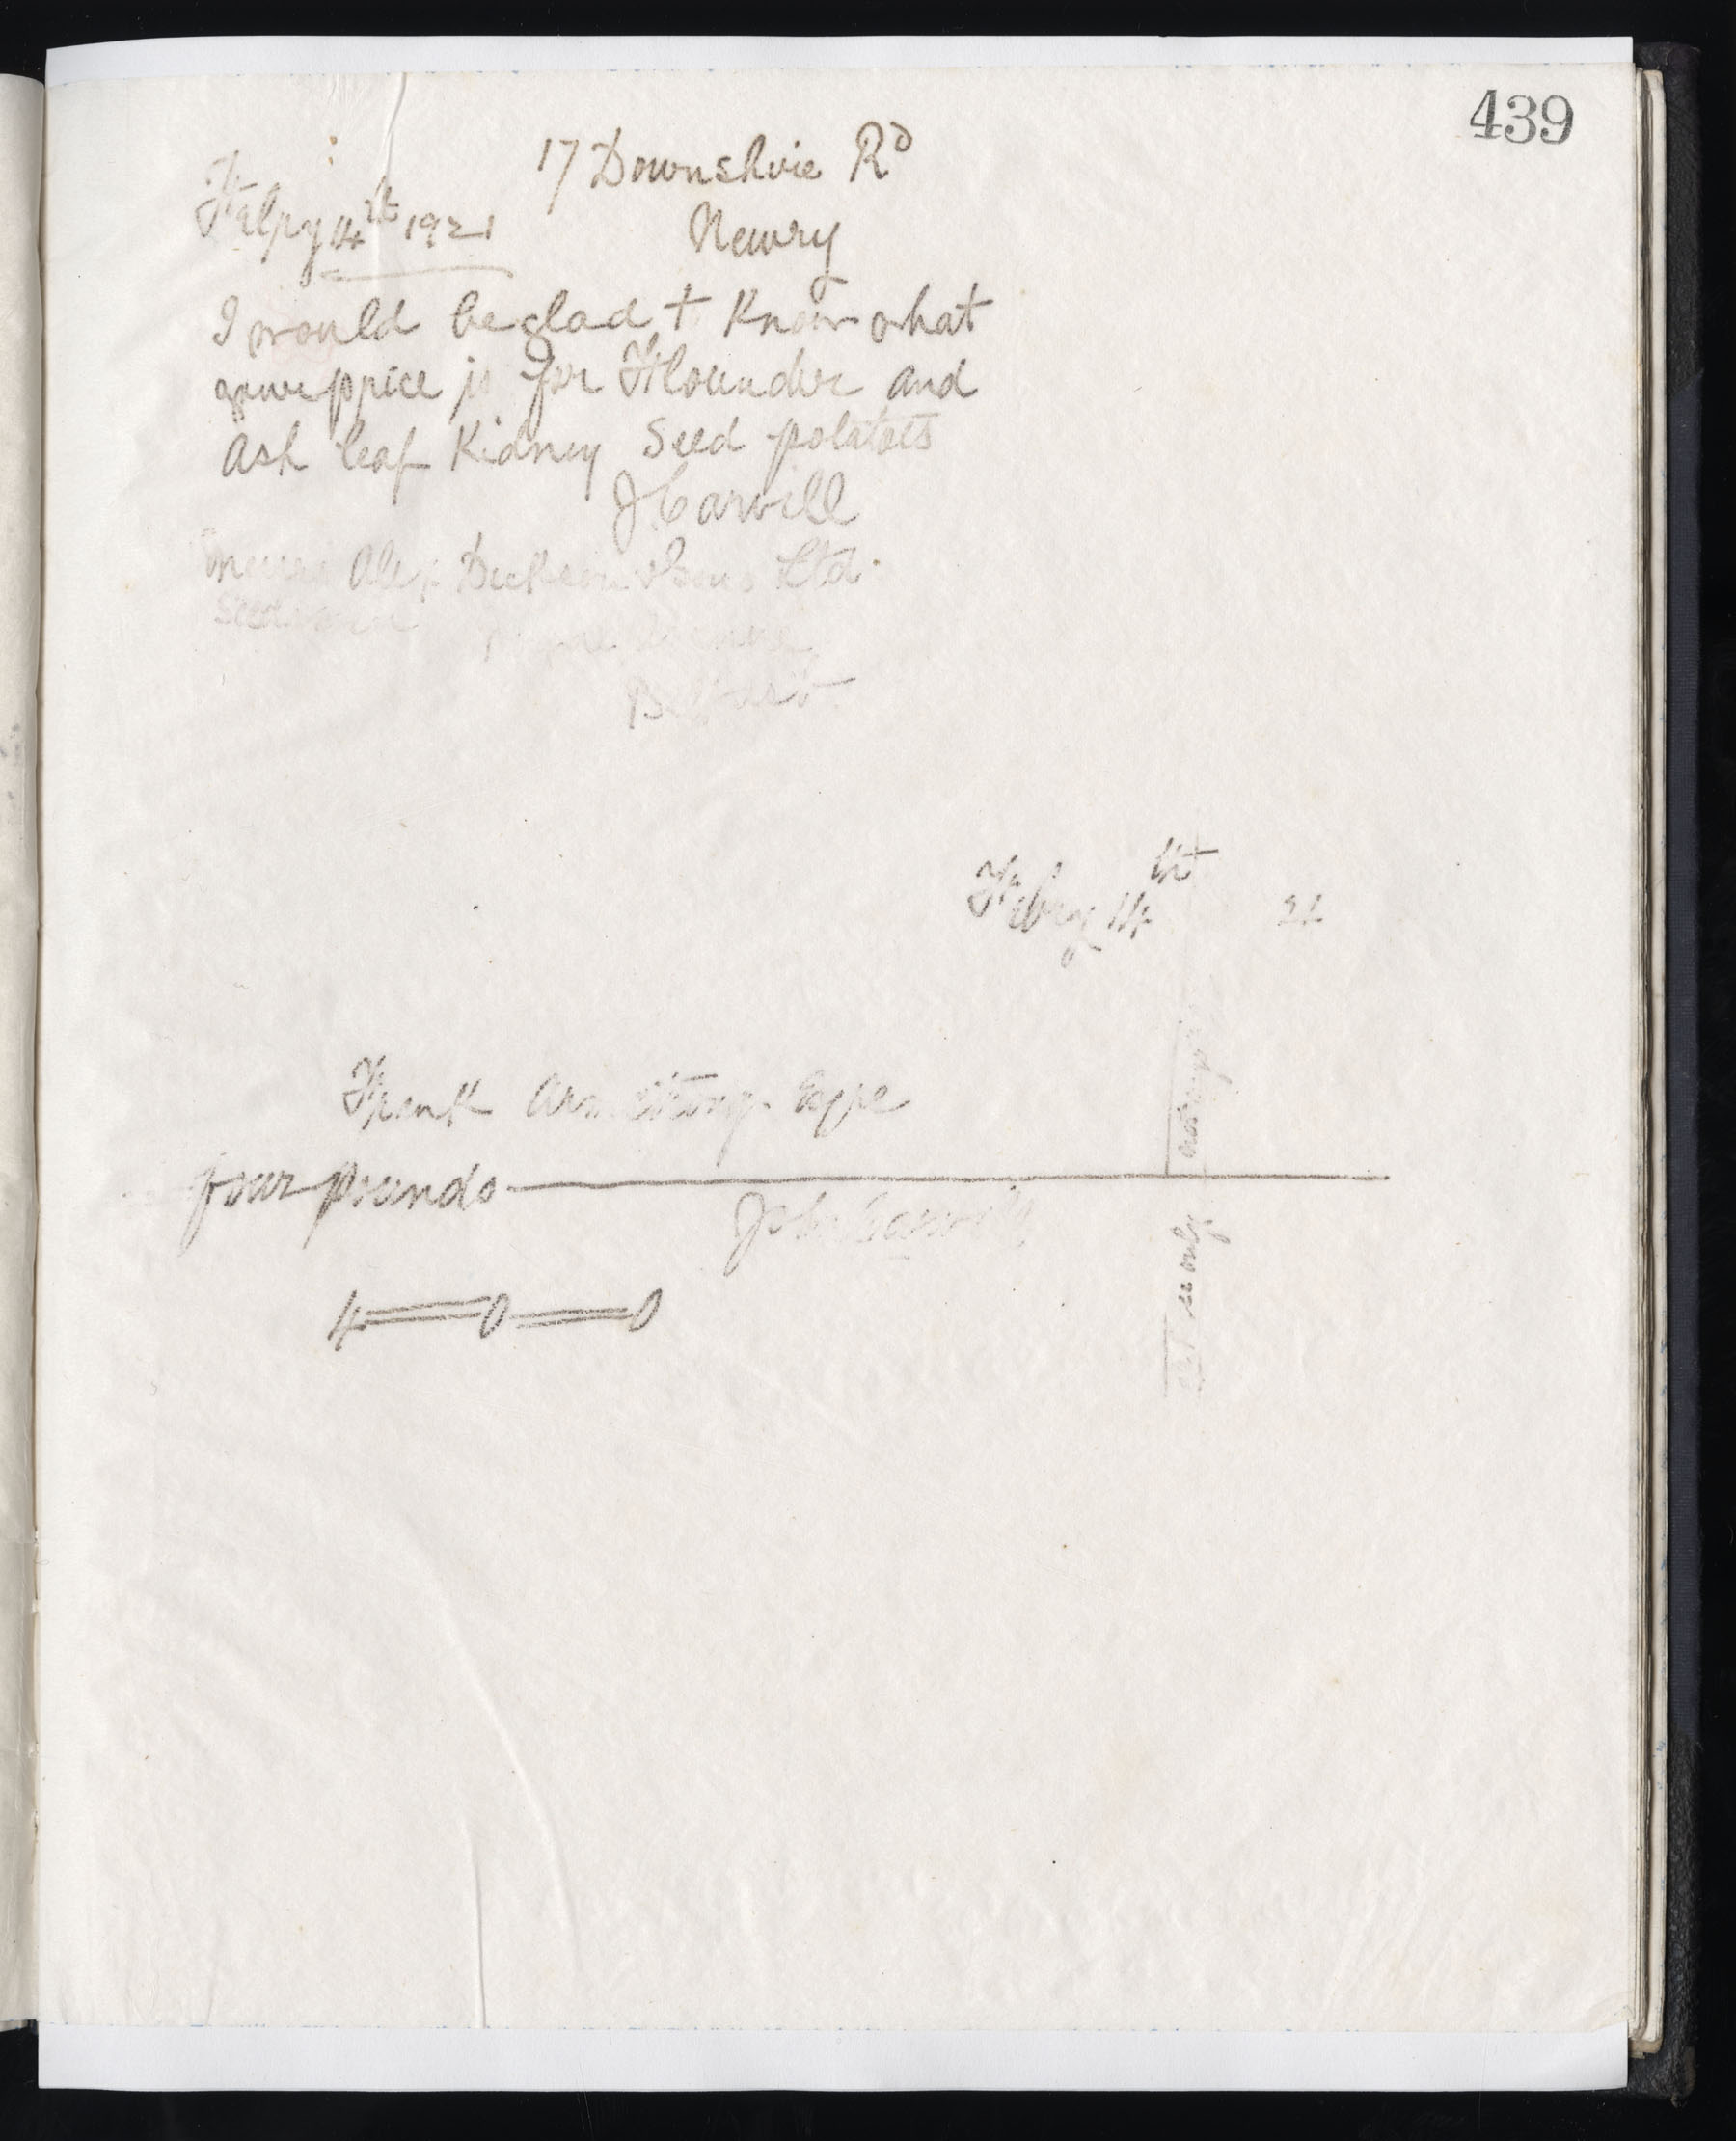 439
17 Downshire Rd
Newry
Febry 4th 1921
I would be glad t know what
your price is for Flounder and
Ash leaf Kidney Seed potatoes
J Carvill
Messrs Alex Dickson & Sons Ltd
Seedsmen
Royal Avenue
Belfast
Febry 14th 21
Frank Armstrong Esqre
four pounds
John Carvill
4=0=0
not negotiable
a/c only